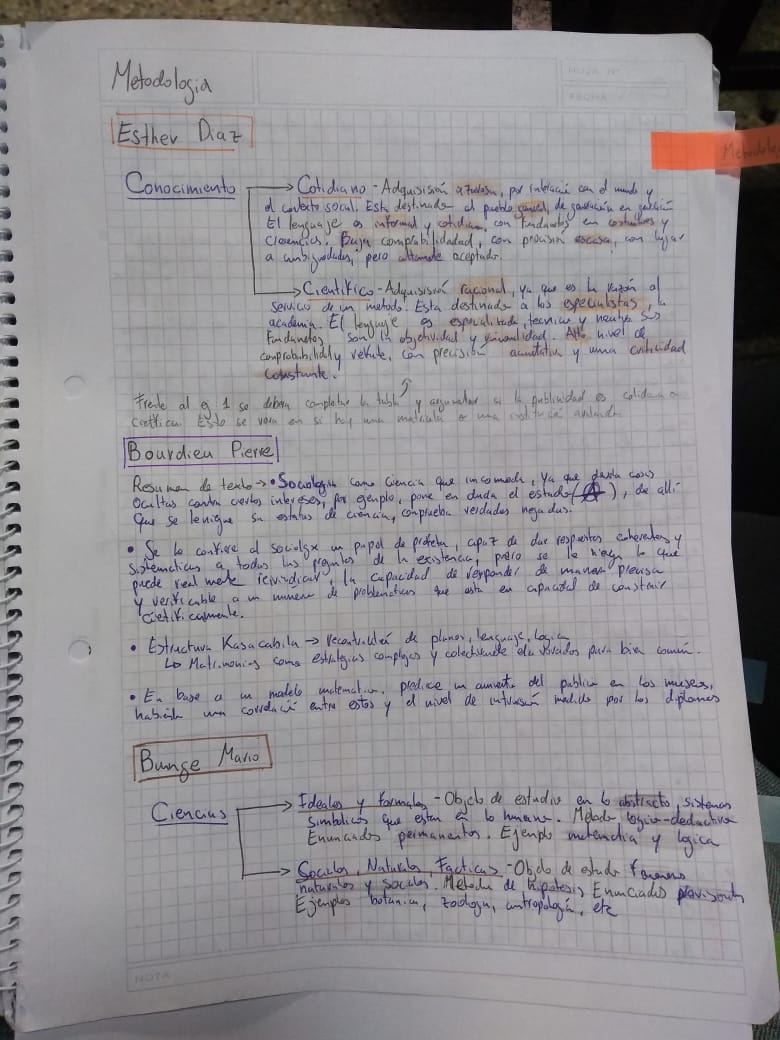 Metodologia
HOJA Nº
FECHA
Esther Diaz
Metodolo
Conocimiento → Cotidiano - Adquisisión azarosa, por interacció con el mundo y
el contexto social. Esta destinado al pueblo general, de generación en
El lenguaje es informal y cotidiano, con fundamentos en costumbres y
creencias. Baja comprobabilidad, con precisión escasa, con lugar
a ambiguedades, pero altamente aceptado.
→ Cientifico - Adquisisión racional, ya que es la razón al
servicio de un metodo. Esta destinado a los especialistas, la
academia. El lenguaje es especializado, tecnico y neutro. Sus
fundamentos son la objetividad y Alto nivel de
con precisión y una criticidad
constante.
Frente al ej 1 se debera completar la tabla y argumentar si la publicidad es cotidiana o
cientifica. Esto se vera en si hay una matricula o una institució
Bourdieu Pierre
Resumen de texto → • Sociologia como ciencia que incomoda, ya que cosas
ocultas contra ciertos intereses, por ejemplo, pone en duda el estado (A), de alli
que se le niegue su estatus de ciencia, comprueba verdades negadas.
• Se le confiere al sociologx un papel de profeta, capaz de dar respuestas coherentes y
sistematicas a todas las preguntas de la existencia, pero se le niega lo que
puede realmente reivindicar, la capacidad de responder de manera precisa
y verificable a un numero de problematicas que esta en capacidad de construir
cientificamente.
• Estructura Kasacabila → de planos, lenguaje, logica
↳ Matrimonios como estrategias complejas y colectivamente elaborados para bien común.
• En base a un modelo matematico, predice un aumento del publico en los museos,
habiendo una correlació entre estos y el nivel de medido por los diplomas
Bunge Mario
Ciencias → Ideales y formales - Objeto de estudio en lo abstracto, sistemas
simbolicos que estan en lo humano. Metodo logico-deductivo
Enunciados permanentes. Ejemplo y logica
→ Sociales, Naturales, Facticas - Objeto de estudio
naturales y sociales. Metodo de hipotesis Enunciados
Ejemplos botanica, zoologia, antropologia, etc
NOTA